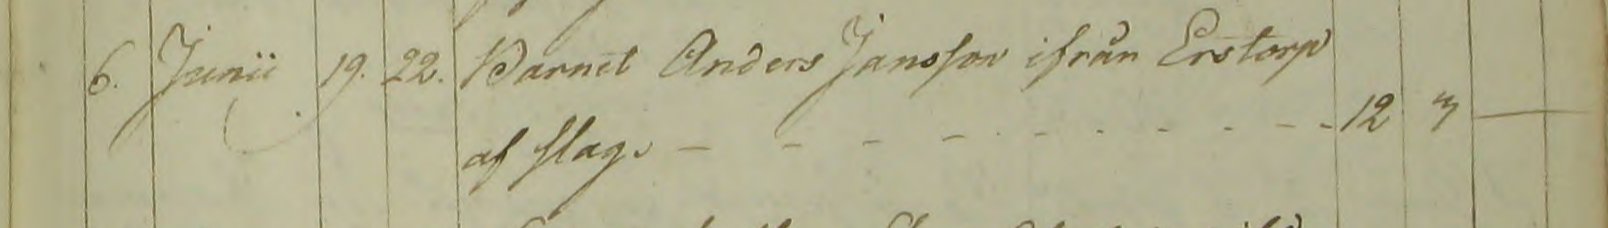 6. Junii 19. 22. Barnet Anders Jansson ifrån Erstorp
af slag. — – – – – – – – – 12 3 —